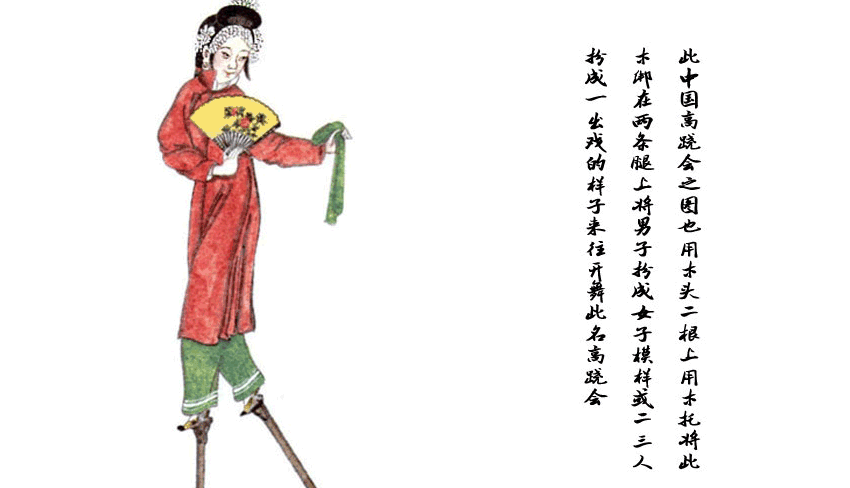 此中国高跷会之图也用木头二根上用木托将此
木绑在两条腿上将男子扮成女子模样或二三人
扮成一出戏的样子来往开舞此名高跷会